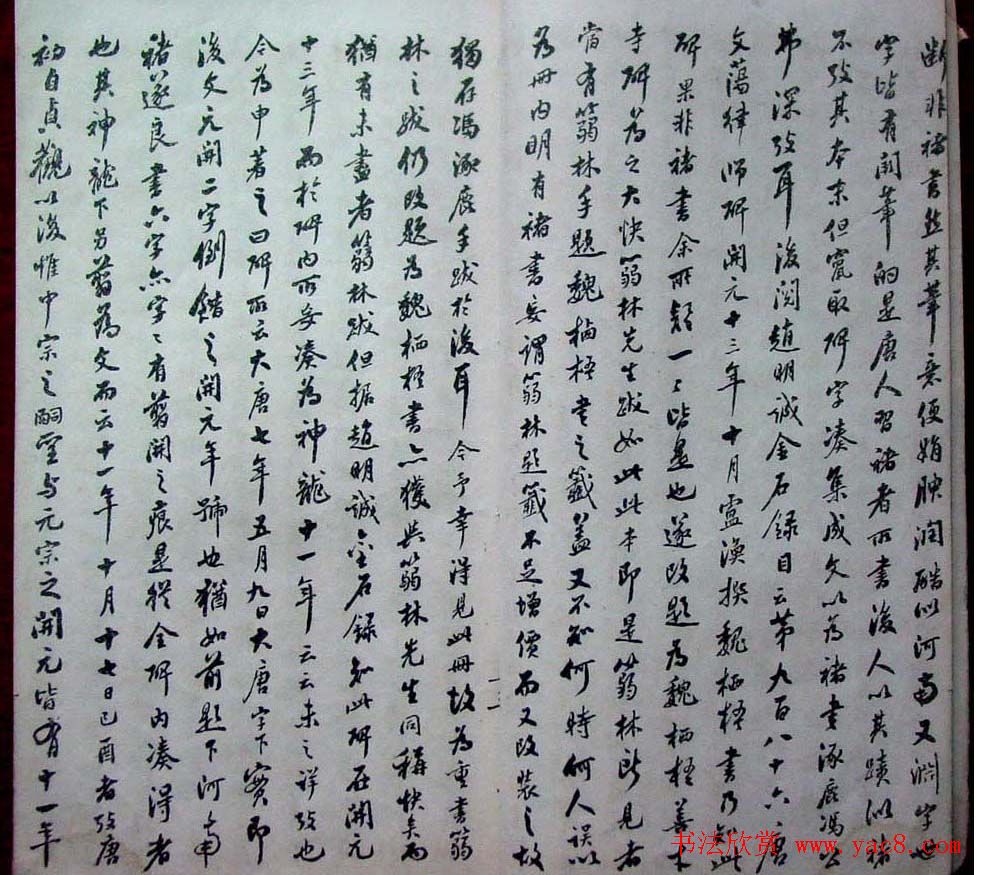 断非褚书然其笔意便娟腴润酷似河南又渊字世
字皆有阙笔的是唐人习褚者所书后人以其蹟似褚
不攷其本末但寬取碑字凑集成文以為褚书涿鹿馮公
弗深攷耳後閲趙明誠金石録目云第九百八十六唐
文蕩律师碑開元十三年十月盧渙撰魏栖梧書乃知此
碑果非褚書余所疑一々皆是也遂改題為魏栖梧善才
寺碑為之大快蒻林先生跋如此此本即是蒻林所見者
當有蒻林手題魏栖梧書之籤蓋又不知何時何人誤以
為冊内明有褚書妄謂蒻林題籤不足增價而又改裝之故
獨存馮涿鹿手跋於後耳今予幸得見此冊故為重書蒻
林之跋仍改題為魏栖梧書亦獲與蒻林先生同稱快矣而
猶有未盡者蒻林跋但据趙明誠金石録知此碑在開元
十三年而於碑内所妄凑為神龍十一年云云未之詳攷也
今為申著之曰碑所云大唐七年五月九日大唐字下實即
後文元開二字倒錯之開元年號也猶如前題下河南
褚遂良書六字亦字々有翦開之痕是從全碑内凑得者
也其神龍下另翦為文而云十一年十月十七日己酉者攷唐
初自貞觀以後惟中宗之嗣聖与元宗之開元皆有十一年
书法欣赏
www.yac8.com